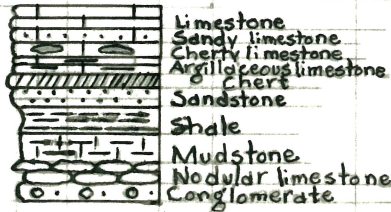 Limestone
Sandy limestone
Cherty limestone
Argillaceous limestone
Chert
Sandstone
Shale
Mudstone
Nodular limestone
Conglomerate